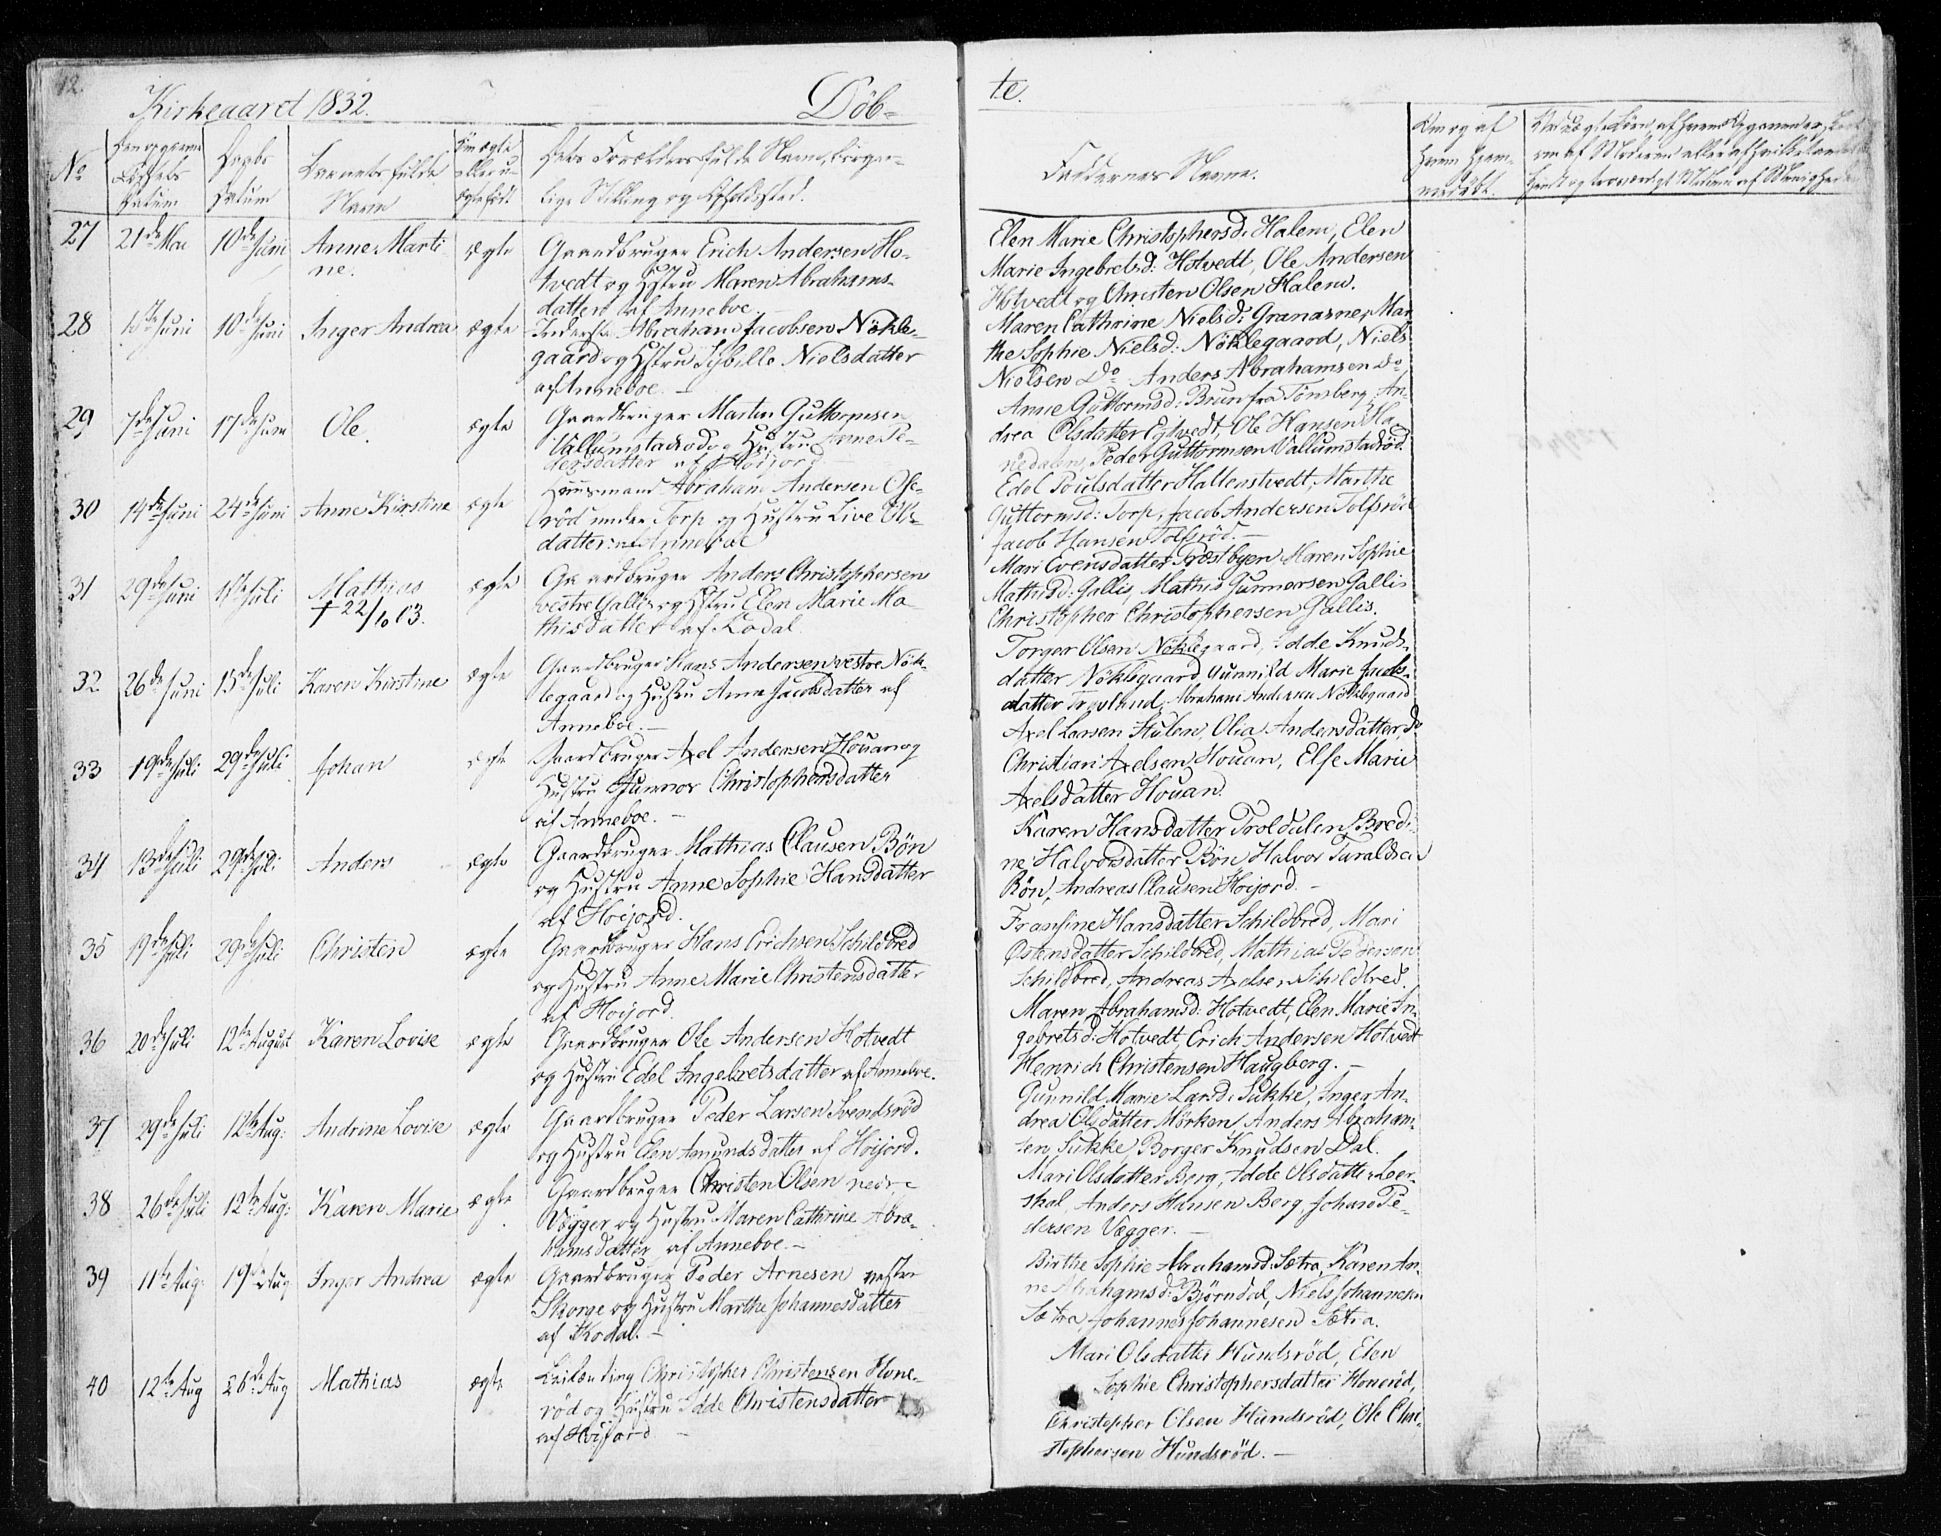 12.
Kirkeaaret 1832.
Döb-
te.
No
Barnets fulde
Navn
Datum
Faddernes Navne.
27 21de Mai 10de Juni Anne Marti ægte Gaardbruger Erich Andersen Ho-
ne. tvedt og Hstru Maren Abrahams-
datter af Anneboe.
Elen Marie Christophersd: Halem, Elen
Marie Ingebretsd: Hotvedt, Ole Andersen
Hotvedt og Christen Olsen Halem.
28 Juni 10de Juni Inger Andrea ægte Inderst Abraham Jacobsen Nökle-
gaard og Hstru Sybille Nielsdatter
af Anneboe. -
Maren Cathrine Nielsd: Granasne, Mar
the Sophie Nielsd: Nöklegaard, Niels
Nielsen Do Anders Abrahamsen Do
29 7de Juni 17de Juni Ole. ægte Gaardbruger Martin Guttormsen
Vallumstadröd og Hustru Anne Pe-
dersdatter af Höijord
Anne Guttormsd: Bruun fra Tönsberg, An-
drea Olsdatter, Ole Hansen
Peder Guttormsen Vallumstadröd.
30 14de Juni 24de Juni Anne Kirstine ægte Huusmand Abraham Andersen
röd under Torp og Hustru Live Ols-
datter af Anneboe
Edel Poulsdatter Hallenstvedt, Marthe
Guttormsd: Torp, Jacob Andersen Tolfsröd
Jacob Hansen Tolfsröd. -
31 29de Juni Juli Mathias ægte Gaardbruger Anders Christophersen
† 22/10 03. vestre Gallis og Hstru Elen Marie Ma-
thisdatter af Kodal.
Mari Evensdatter Præstbyen Maren Sophie
Mathisd: Gallis, Mathis Gunnersen Gallis
Christopher Christophersen Gallis.
32 26de Juni 15de Juli Karen Kirstine ægte Gaardbruger Hans Andersen vestre Nök-
legaard og Hustru Anne Jacobsdatter af
Anneboe. -
Torger Olsen Nöklegaard, Idde Knuds-
datter Nöklegaard Gunnild Marie Jacobs-
datter, Abraham Andersen Nöklegaard
33 19de Juli 29de Juli Johan ægte Gaardbruger Axel Andersen Houan og
Hustru Gunnor Christophersdatter
af Anneboe. -
Axel Larsen Hulem, Olia Andersdatter, Do
Christian Axelsen Houan, Else Marie
Axelsdatter Houan.
34 13de Juli 29de Juli Anders ægte Gaardbruger Mathias Clausen Bön
og Hustru Anne Sophie Hansdatter
af Höijord.
Karen Hansdatter Troldalen, Bredi-
ne Halvorsdatter Bön Halvor Taraldsen
Bön, Andreas Clausen Höijord. -
35 19de Juli 29de Juli Christen ægte Gaardbruger Hans Erichsen Schildbred
og Hustru Anne Marie Christensdatter
af Höijord.
Fransine Hansdatter Schildbred, Mari
Ostensdatter Schildbred, Mathias Pedersen
Schildbred, Andreas Axelsen Schildbred.
36 20de Juli 12te August Karen Lovise ægte Gaardbruger Ole Andersen Hotvedt
og Hustru Edel Ingebretsdatter af Anneboe.
Maren Abrahamsd: Hotvedt, Elen Marie In-
gebretsd: Hotvedt, Erich Andersen Hotvedt
Henrich Christensen Haugberg. -
37 29de Juli 12te Aug: Andrine Lovise ægte Gaardbruger Peder Larsen Svendsröd
og Hustru Elen Amundsdatter af Höijord.
Gunnild Marie Larsd: Sukke, Inger An-
drea Olsdatter Mörken, Anders Abraham-
sen Sukke, Borger Knudsen Dal.
38 26de Juli 12te Aug: Karen Marie ægte Gaardbruger Christen Olsen nedre
Vegger og Hustru Maren Cathrine Abra-
hamsdatter af Anneboe. -
Mari Olsdatter Berg, Idde Olsdatter Leer-
skal, Anders Hansen Berg, Johan Pe-
dersen Vægger. -
39 11te Aug: 19de Aug Inger Andrea ægte Gaardbruger Peder Arnesen vestre
Skorge og Hustru Marthe Johannesdatter
af Kodal. -
Birthe Sophie Abrahamsd: Sætra, Karen An-
ne Abrahamsd: Björndal, Niels Johannesen
Sætra, Johannes Johannesen Sætra.
40 12te Aug 26de Aug Mathias ægte Leilænding Christopher Christensen Hone-
röd og Hustru Idde Christensdatter
af Höijord -
Mari Olsdatter Hundsröd, Elen
Sophie Christophersdatter Honeröd,
Christopher Olsen Hundsröd, Ole Chri-
stophersen Hundsröd. -